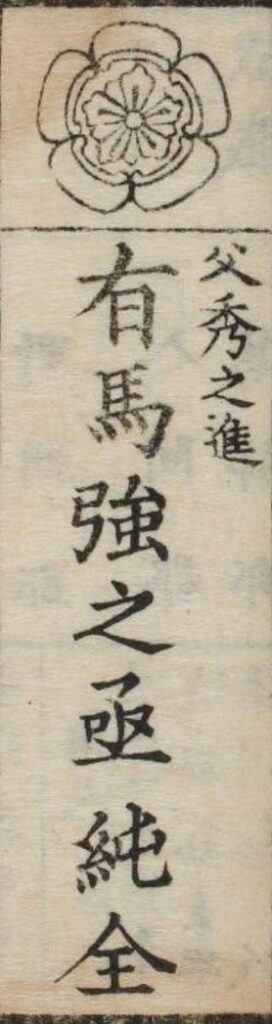 父秀之進
有馬強之亟純全